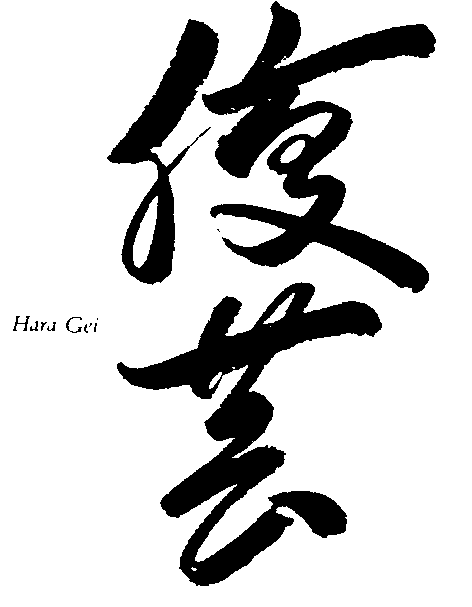 腹芸
Hara Gei